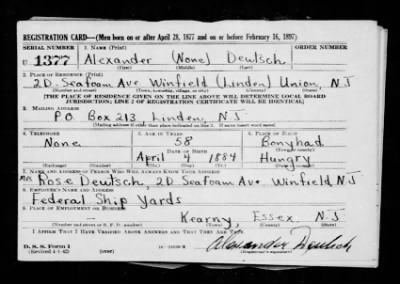 REGISTRATION CARD—(Men born on or after April 28, 1877 and on or before February 16, 1897)
SERIAL NUMBER 1. NAME (Print) ORDER NUMBER
U 1377 Alexander (None) Deutsch
(First) (Middle) (Last)
2. PLACE OF RESIDENCE (Print)
2D. Seafoam Ave Winfield (Linden) Union, N.J
(Number and street) (Town, township, village, or city) (County) (State)
[THE PLACE OF RESIDENCE GIVEN ON THE LINE ABOVE WILL DETERMINE LOCAL BOARD
JURISDICTION; LINE 2 OF REGISTRATION CERTIFICATE WILL BE IDENTICAL]
3. MAILING ADDRESS
P.O. Box 213 Linden N.J.
[Mailing address if other than place indicated on line 2. If same insert word same]
4. TELEPHONE 5. AGE IN YEARS 6. PLACE OF BIRTH
None 58 Bonyhad
DATE OF BIRTH (Town or county)
April 4 1884 Hungry
(Exchange) (Number) (Mo.) (Day) (Yr.) (State or country)
7. NAME AND ADDRESS OF PERSON WHO WILL ALWAYS KNOW YOUR ADDRESS
Mrs Rose Deutsch, 2D Seafoam Ave Winfield N.J
8. EMPLOYER'S NAME AND ADDRESS
Federal Ship Yards
9. PLACE OF EMPLOYMENT OR BUSINESS
Kearny, Essex N.J
(Number and street or R. F. D. number) (Town) (County) (State)
I AFFIRM THAT I HAVE VERIFIED ABOVE ANSWERS AND THAT THEY ARE TRUE.
D. S. S. Form 1
(Revised 4-1-42) (over)
Alexander Deutsch
(Registrant's signature)